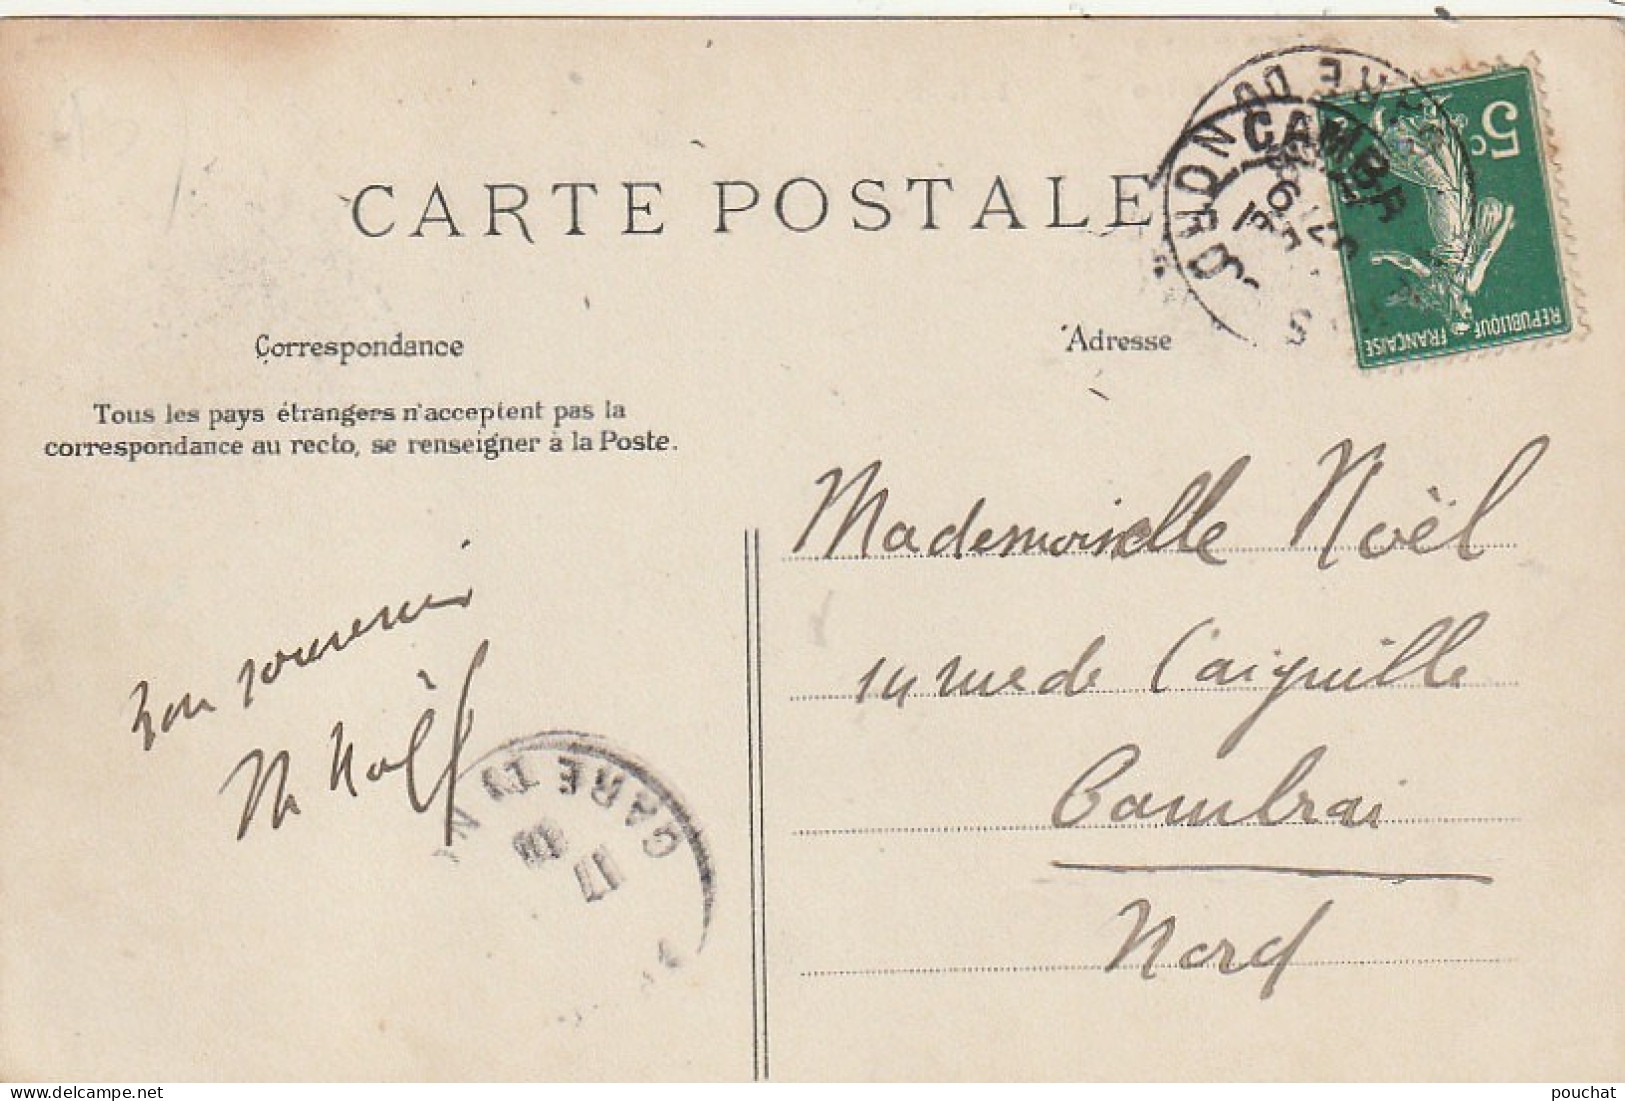 CARTE POSTALE
Correspondance
Adresse
Tous les pays étrangers n'acceptent pas la
correspondance au recto, se renseigner à la Poste.
5c
REPUBLIQUE
FRANÇAISE
CAMBR
Mademoiselle Noël
14 rue de l'aiguille
Cambrai
Nord
Bon souvenir
M Noël
GARE
17
pouchat